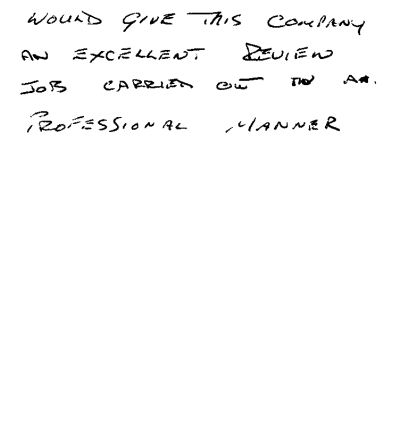 WOULD GIVE THIS COMPANY
AN EXCELLENT REVIEW
JOB CARRIED OUT IN AN
PROFESSIONAL MANNER